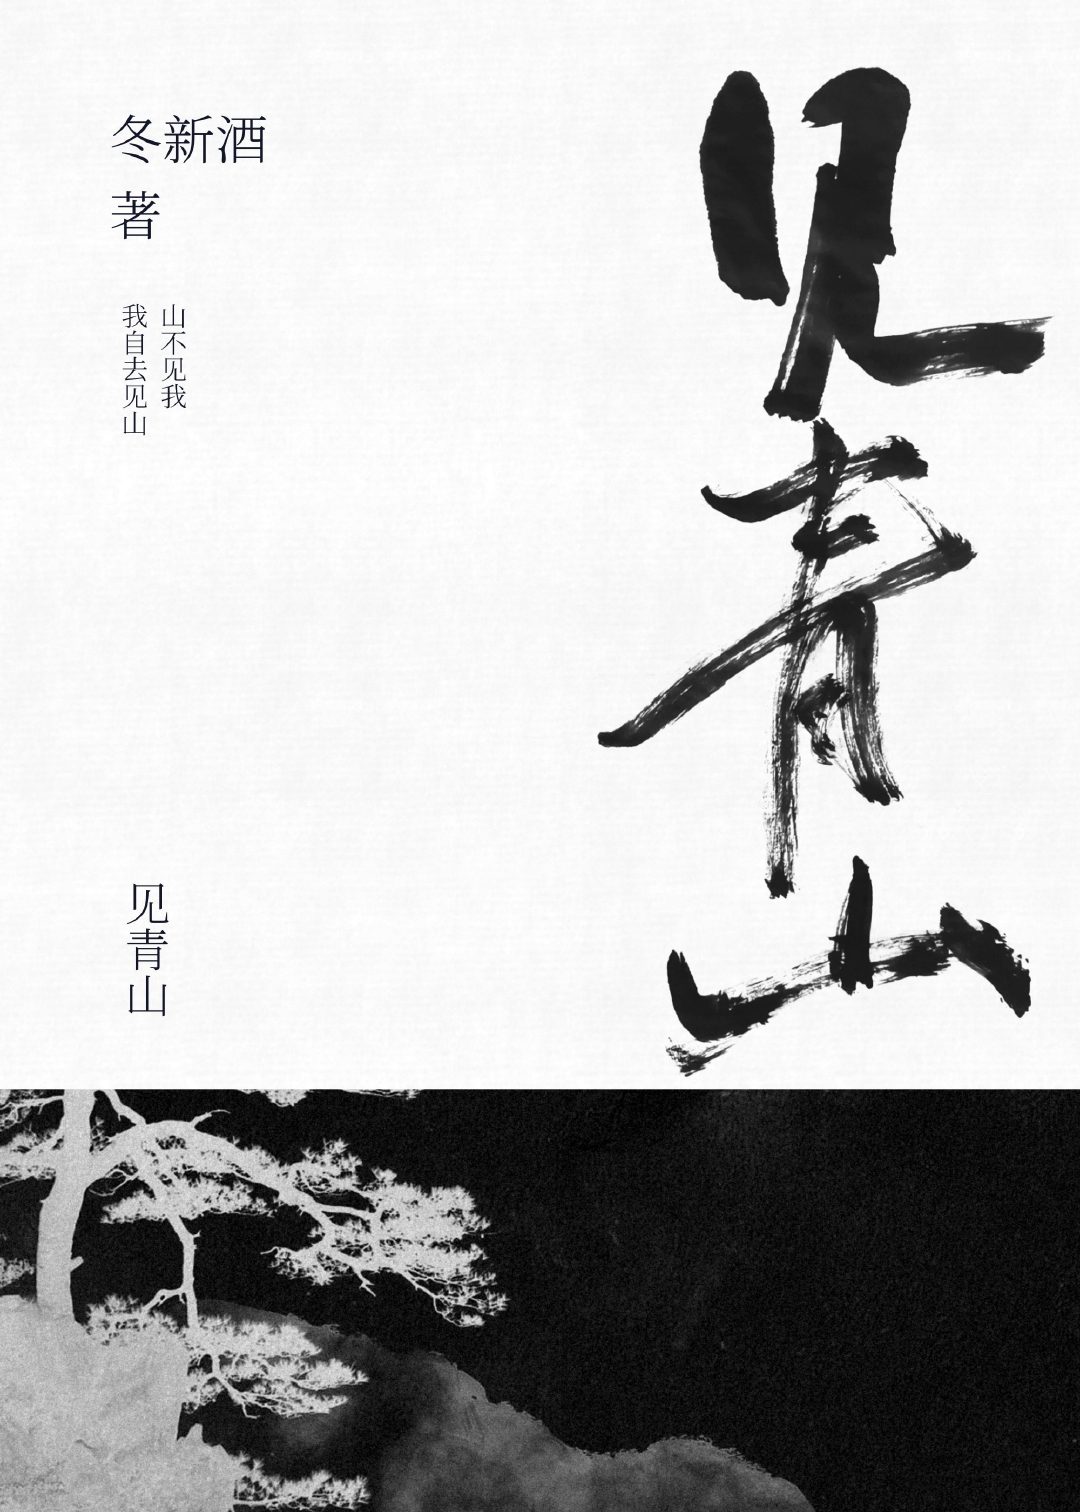 见青山
冬新酒
著
山不见我
我自去见山
见青山